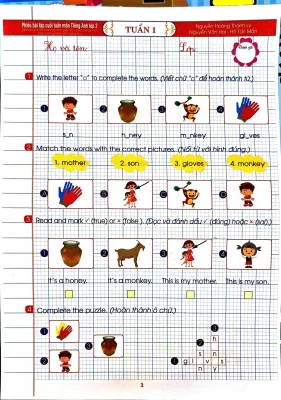 Phiếu bài tập cuối tuần môn Tiếng Anh lớp 2
TUẦN 1
Nguyễn Hoàng Thanh Ly
Nguyễn Văn Hợi - Hồ Tấn Mẫn
Họ và tên:
Lớp:
1 Write the letter "o" to complete the words. (Viết chữ "o" để hoàn thành từ.)
1 2 3 4
s_n h_ney m_nkey gl_ves
2 Match the words with the correct pictures. (Nối từ với hình đúng.)
1. mother 2. son 3. gloves 4. monkey
A B C D
3 Read and mark ✓ (true) or × (false). (Đọc và đánh dấu ✓ (đúng) hoặc × (sai).)
1 2 3 4
It's a honey. It's a monkey. This is my mother. This is my son.
4 Complete the puzzle. (Hoàn thành ô chữ.)
1
3
2
3
h
2
s n
1 g l v s
n y
1